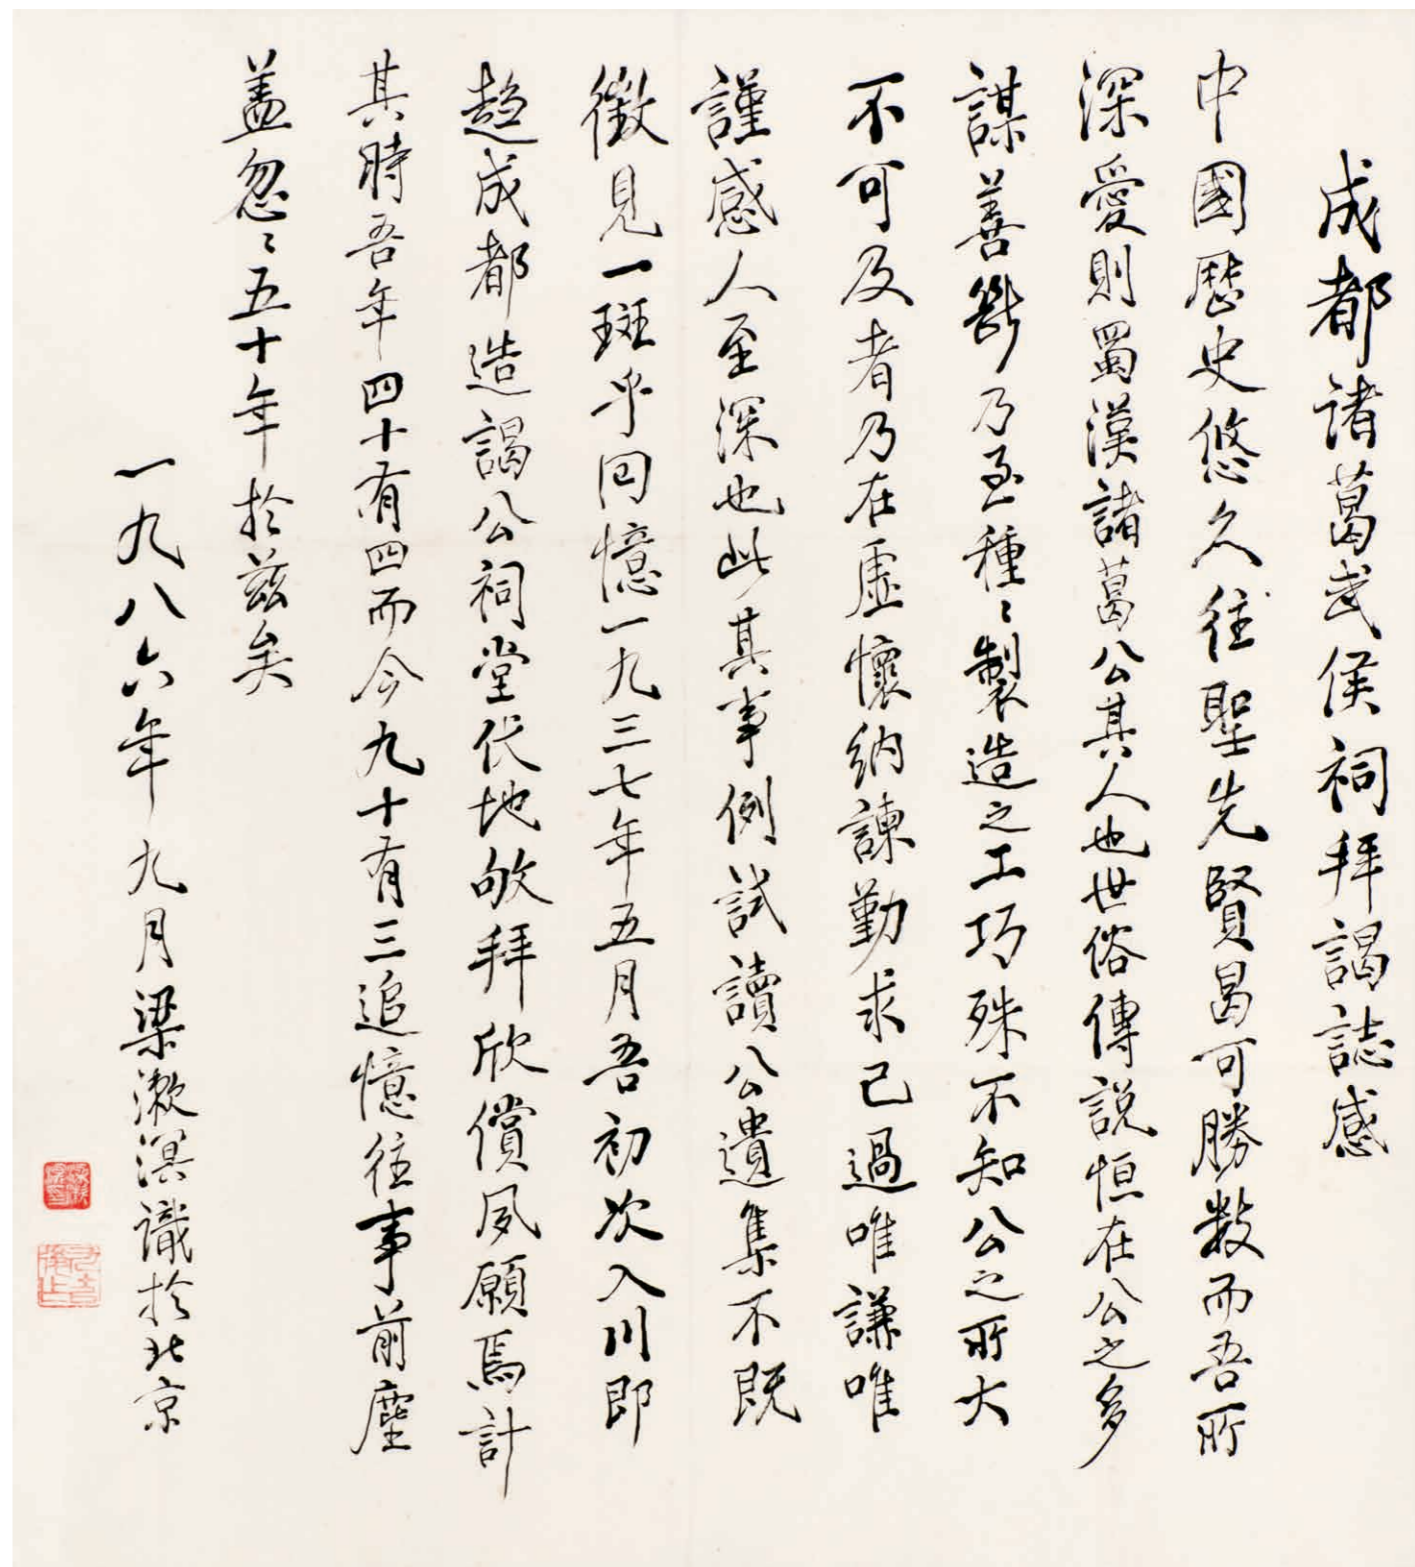 成都諸葛武侯祠拜謁誌感
中國歷史悠久往聖先賢曷可勝數而吾所
深愛則蜀漢諸葛公其人也世俗傳説恒在公之多
謀善斷乃至種〻製造之工巧殊不知公之所大
不可及者乃在虛懷納諫勤求己過唯謙唯
謹感人至深也此其事例試讀公遺集不既
徵見一斑乎回憶一九三七年五月吾初次入川即
趋成都造謁公祠堂伏地敬拜欣償夙願焉計
其時吾年四十有四而今九十有三追憶往事前塵
盖忽〻五十年於兹矣
一九八六年九月梁漱溟識於北京